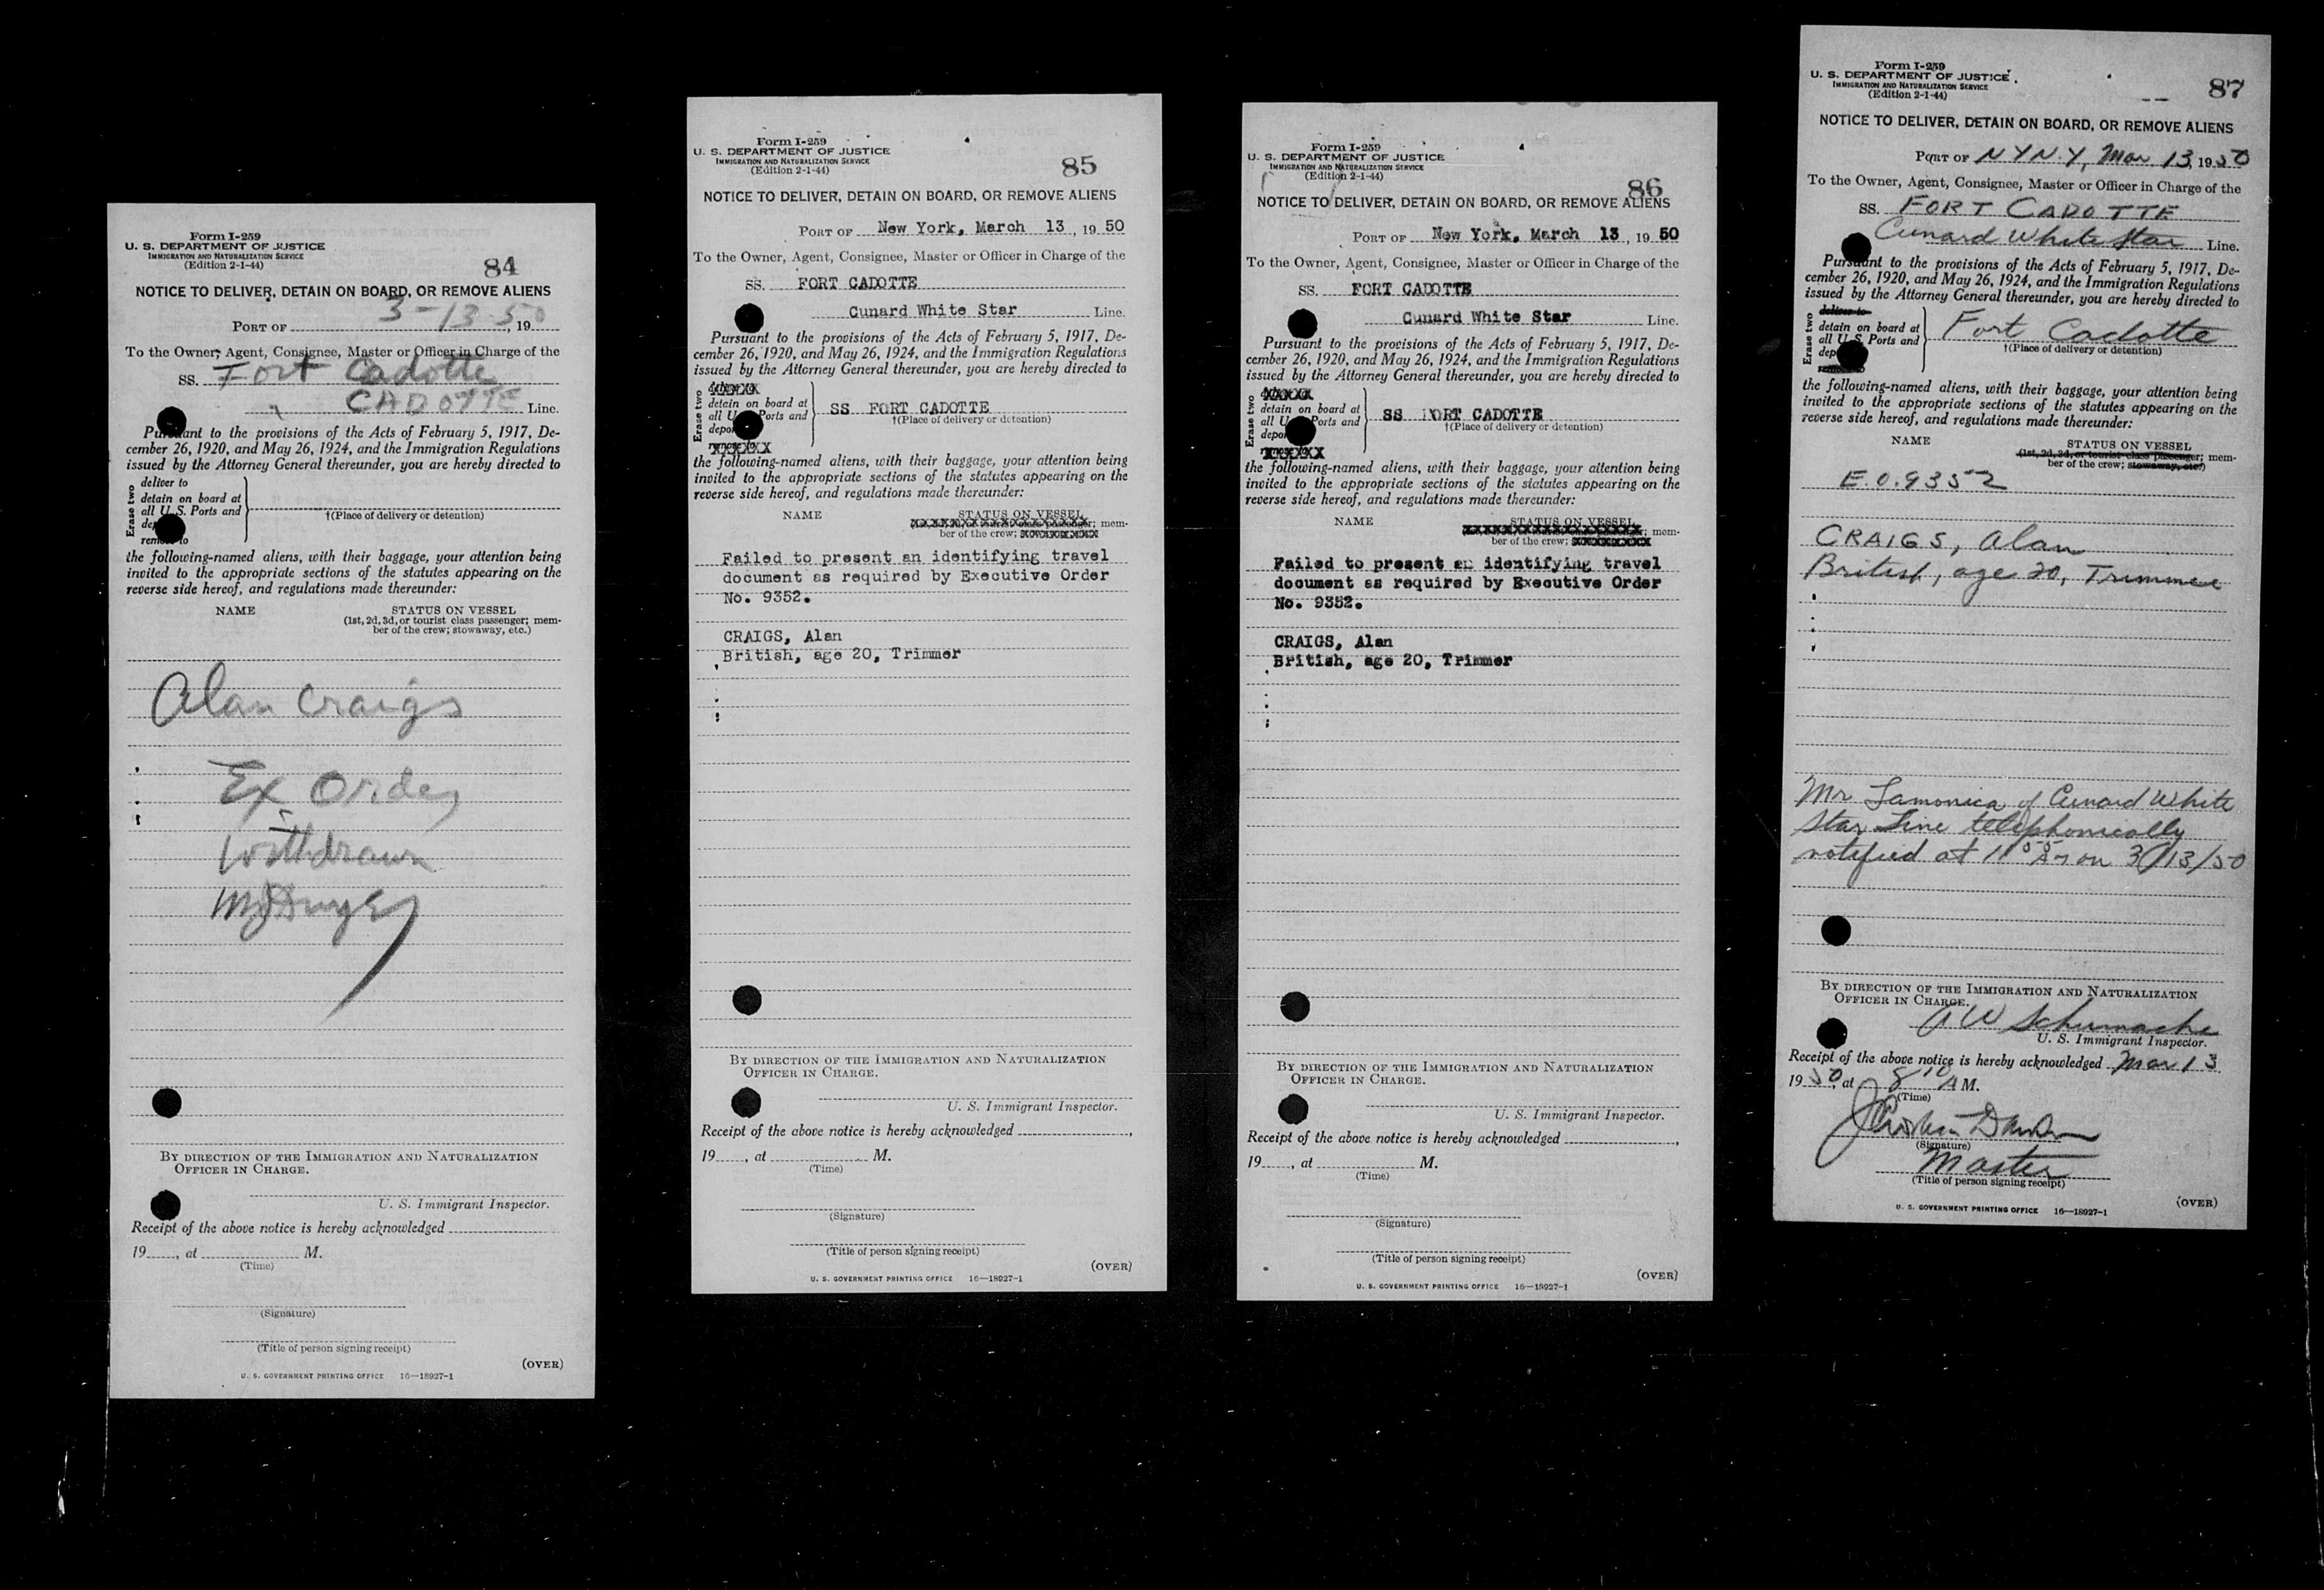 Form I-259
U. S. DEPARTMENT OF JUSTICE
IMMIGRATION AND NATURALIZATION SERVICE
(Edition 2-1-44)
84
NOTICE TO DELIVER, DETAIN ON BOARD, OR REMOVE ALIENS
PORT OF 3-13-50, 19
To the Owner, Agent, Consignee, Master or Officer in Charge of the
SS. Fort Cadotte
" CADOTTE Line.
Pursuant to the provisions of the Acts of February 5, 1917, De-
cember 26, 1920, and May 26, 1924, and the Immigration Regulations
issued by the Attorney General thereunder, you are hereby directed to
Erase two
deliver to
detain on board at
all U. S. Ports and
remove to
†(Place of delivery or detention)
the following-named aliens, with their baggage, your attention being
invited to the appropriate sections of the statutes appearing on the
reverse side hereof, and regulations made thereunder:
NAME STATUS ON VESSEL
(1st, 2d, 3d, or tourist class passenger; mem-
ber of the crew; stowaway, etc.)
Alan Craigs
Ex Order
Withdrawn
BY DIRECTION OF THE IMMIGRATION AND NATURALIZATION
OFFICER IN CHARGE.
U. S. Immigrant Inspector.
Receipt of the above notice is hereby acknowledged
19, at M.
(Time)
(Signature)
(Title of person signing receipt)
(OVER)
U. S. GOVERNMENT PRINTING OFFICE 16—18927-1
Form I-259
U. S. DEPARTMENT OF JUSTICE
IMMIGRATION AND NATURALIZATION SERVICE
(Edition 2-1-44)
85
NOTICE TO DELIVER, DETAIN ON BOARD, OR REMOVE ALIENS
PORT OF New York, March 13, 19 50
To the Owner, Agent, Consignee, Master or Officer in Charge of the
SS. FORT CADOTTE
Cunard White Star Line.
Pursuant to the provisions of the Acts of February 5, 1917, De-
cember 26, 1920, and May 26, 1924, and the Immigration Regulations
issued by the Attorney General thereunder, you are hereby directed to
Erase two
detain on board at
all U. S. Ports and
SS FORT CADOTTE
†(Place of delivery or detention)
the following-named aliens, with their baggage, your attention being
invited to the appropriate sections of the statutes appearing on the
reverse side hereof, and regulations made thereunder:
NAME STATUS ON VESSEL
mem-
ber of the crew;
Failed to present an identifying travel
document as required by Executive Order
No. 9352.
CRAIGS, Alan
British, age 20, Trimmer
BY DIRECTION OF THE IMMIGRATION AND NATURALIZATION
OFFICER IN CHARGE.
U. S. Immigrant Inspector.
Receipt of the above notice is hereby acknowledged ,
19, at M.
(Time)
(Signature)
(Title of person signing receipt)
(OVER)
U. S. GOVERNMENT PRINTING OFFICE 16—18927-1
Form I-259
U. S. DEPARTMENT OF JUSTICE
IMMIGRATION AND NATURALIZATION SERVICE
(Edition 2-1-44)
86
NOTICE TO DELIVER, DETAIN ON BOARD, OR REMOVE ALIENS
PORT OF New York, March 13, 19 50
To the Owner, Agent, Consignee, Master or Officer in Charge of the
SS. FORT CADOTTE
Cunard White Star Line.
Pursuant to the provisions of the Acts of February 5, 1917, De-
cember 26, 1920, and May 26, 1924, and the Immigration Regulations
issued by the Attorney General thereunder, you are hereby directed to
Erase two
detain on board at
all U. S. Ports and
SS FORT CADOTTE
†(Place of delivery or detention)
the following-named aliens, with their baggage, your attention being
invited to the appropriate sections of the statutes appearing on the
reverse side hereof, and regulations made thereunder:
NAME STATUS ON VESSEL
mem-
ber of the crew;
Failed to present an identifying travel
document as required by Executive Order
No. 9352.
CRAIGS, Alan
British, age 20, Trimmer
BY DIRECTION OF THE IMMIGRATION AND NATURALIZATION
OFFICER IN CHARGE.
U. S. Immigrant Inspector.
Receipt of the above notice is hereby acknowledged ,
19, at M.
(Time)
(Signature)
(Title of person signing receipt)
(OVER)
U. S. GOVERNMENT PRINTING OFFICE 16—18927-1
Form I-259
U. S. DEPARTMENT OF JUSTICE
IMMIGRATION AND NATURALIZATION SERVICE
(Edition 2-1-44)
87
NOTICE TO DELIVER, DETAIN ON BOARD, OR REMOVE ALIENS
PORT OF N Y N.Y, Mar 13, 1950
To the Owner, Agent, Consignee, Master or Officer in Charge of the
SS. FORT CADOTTE
Cunard White Star Line.
Pursuant to the provisions of the Acts of February 5, 1917, De-
cember 26, 1920, and May 26, 1924, and the Immigration Regulations
issued by the Attorney General thereunder, you are hereby directed to
Erase two
deliver to
detain on board at
all U. S. Ports and
remove to
Fort Cadotte
†(Place of delivery or detention)
the following-named aliens, with their baggage, your attention being
invited to the appropriate sections of the statutes appearing on the
reverse side hereof, and regulations made thereunder:
NAME STATUS ON VESSEL
(1st, 2d, 3d, or tourist class passenger; mem-
ber of the crew; stowaway, etc.)
E.O. 9352
CRAIGS, Alan
British, age 20, Trimmer
Mr Lamonica of Cunard White
Star Line telephonically
notified at 11 55 AM on 3/13/50
BY DIRECTION OF THE IMMIGRATION AND NATURALIZATION
OFFICER IN CHARGE.
A W Schumacher
U. S. Immigrant Inspector.
Receipt of the above notice is hereby acknowledged Mar 13
1950, at 8 10 A M.
(Time)
(Signature)
Master
(Title of person signing receipt)
(OVER)
U. S. GOVERNMENT PRINTING OFFICE 16—18927-1